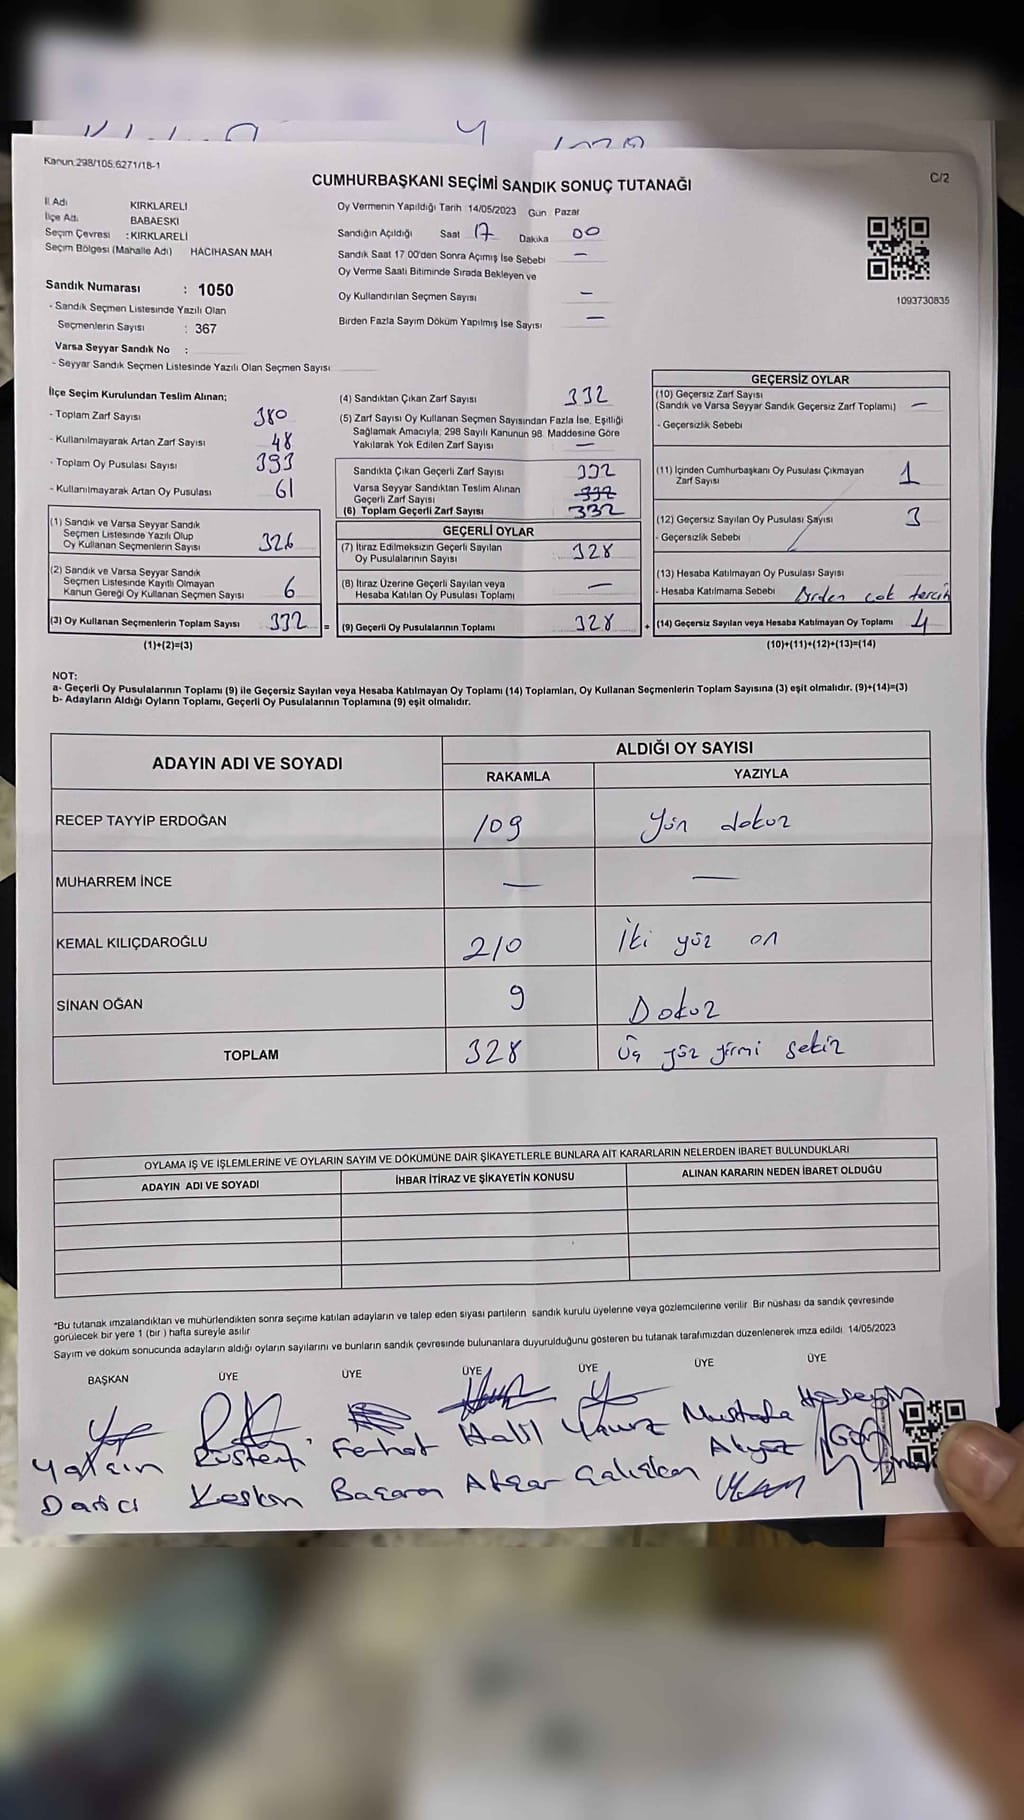 Kanun 298/105.6271/18-1
C/2
CUMHURBAŞKANI SEÇİMİ SANDIK SONUÇ TUTANAĞI
İl Adı KIRKLARELİ
İlçe Adı BABAESKİ
Seçim Çevresi : KIRKLARELİ
Seçim Bölgesi (Mahalle Adı) HACIHASAN MAH
Sandık Numarası : 1050
- Sandık Seçmen Listesinde Yazılı Olan
Seçmenlerin Sayısı : 367
Varsa Seyyar Sandık No :
- Seyyar Sandık Seçmen Listesinde Yazılı Olan Seçmen Sayısı
Oy Vermenin Yapıldığı Tarih 14/05/2023 Gün Pazar
Sandığın Açıldığı Saat 17 Dakika 00
Sandık Saat 17 00'den Sonra Açımış İse Sebebi —
Oy Verme Saati Bitiminde Sırada Bekleyen ve
Oy Kullandırılan Seçmen Sayısı —
Birden Fazla Sayım Döküm Yapılmış İse Sayısı —
1093730835
İlçe Seçim Kurulundan Teslim Alınan;
- Toplam Zarf Sayısı 380
- Kullanılmayarak Artan Zarf Sayısı 48
- Toplam Oy Pusulası Sayısı 393
- Kullanılmayarak Artan Oy Pusulası 61
(1) Sandık ve Varsa Seyyar Sandık
Seçmen Listesinde Yazılı Olup
Oy Kullanan Seçmenlerin Sayısı 326
(2) Sandık ve Varsa Seyyar Sandık
Seçmen Listesinde Kayıtlı Olmayan
Kanun Gereği Oy Kullanan Seçmen Sayısı 6
(3) Oy Kullanan Seçmenlerin Toplam Sayısı 332 =
(1)+(2)=(3)
(4) Sandıktan Çıkan Zarf Sayısı 332
(5) Zarf Sayısı Oy Kullanan Seçmen Sayısından Fazla İse, Eşitliği
Sağlamak Amacıyla, 298 Sayılı Kanunun 98. Maddesine Göre
Yakılarak Yok Edilen Zarf Sayısı —
Sandıkta Çıkan Geçerli Zarf Sayısı 332
Varsa Seyyar Sandıktan Teslim Alınan
Geçerli Zarf Sayısı 332
(6) Toplam Geçerli Zarf Sayısı 332
GEÇERLİ OYLAR
(7) İtiraz Edilmeksizin Geçerli Sayılan
Oy Pusulalarının Sayısı 328
(8) İtiraz Üzerine Geçerli Sayılan veya
Hesaba Katılan Oy Pusulası Toplamı —
(9) Geçerli Oy Pusulalarının Toplamı 328 +
GEÇERSİZ OYLAR
(10) Geçersiz Zarf Sayısı
(Sandık ve Varsa Seyyar Sandık Geçersiz Zarf Toplamı) —
- Geçersizlik Sebebi
(11) İçinden Cumhurbaşkanı Oy Pusulası Çıkmayan
Zarf Sayısı 1
(12) Geçersiz Sayılan Oy Pusulası Sayısı 3
- Geçersizlik Sebebi
(13) Hesaba Katılmayan Oy Pusulası Sayısı
- Hesaba Katılmama Sebebi Birden çok tercih
(14) Geçersiz Sayılan veya Hesaba Katılmayan Oy Toplamı 4
(10)+(11)+(12)+(13)=(14)
NOT:
a- Geçerli Oy Pusulalarının Toplamı (9) ile Geçersiz Sayılan veya Hesaba Katılmayan Oy Toplamı (14) Toplamları, Oy Kullanan Seçmenlerin Toplam Sayısına (3) eşit olmalıdır. (9)+(14)=(3)
b- Adayların Aldığı Oyların Toplamı, Geçerli Oy Pusulalarının Toplamına (9) eşit olmalıdır.
ADAYIN ADI VE SOYADI
ALDIĞI OY SAYISI
RAKAMLA YAZIYLA
RECEP TAYYİP ERDOĞAN 109 Yüz dokuz
MUHARREM İNCE — —
KEMAL KILIÇDAROĞLU 210 İki yüz on
SİNAN OĞAN 9 Dokuz
TOPLAM 328 Üç yüz yirmi sekiz
OYLAMA İŞ VE İŞLEMLERİNE VE OYLARIN SAYIM VE DÖKÜMÜNE DAİR ŞİKAYETLERLE BUNLARA AİT KARARLARIN NELERDEN İBARET BULUNDUKLARI
ADAYIN ADI VE SOYADI İHBAR İTİRAZ VE ŞİKAYETİN KONUSU ALINAN KARARIN NEDEN İBARET OLDUĞU
*Bu tutanak imzalandıktan ve mühürlendikten sonra seçime katılan adayların ve talep eden siyasi partilerin sandık kurulu üyelerine veya gözlemcilerine verilir. Bir nüshası da sandık çevresinde
görülecek bir yere 1 (bir ) hafta süreyle asılır
Sayım ve döküm sonucunda adayların aldığı oyların sayılarını ve bunların sandık çevresinde bulunanlara duyurulduğunu gösteren bu tutanak tarafımızdan düzenlenerek imza edildi 14/05/2023
BAŞKAN ÜYE ÜYE ÜYE ÜYE ÜYE ÜYE
Yalçın Rüstem Ferhat Halil Yavuz Mustafa Hüseyin
Darıcı Keskin Başaran Akçar Çalışkan Akyüz